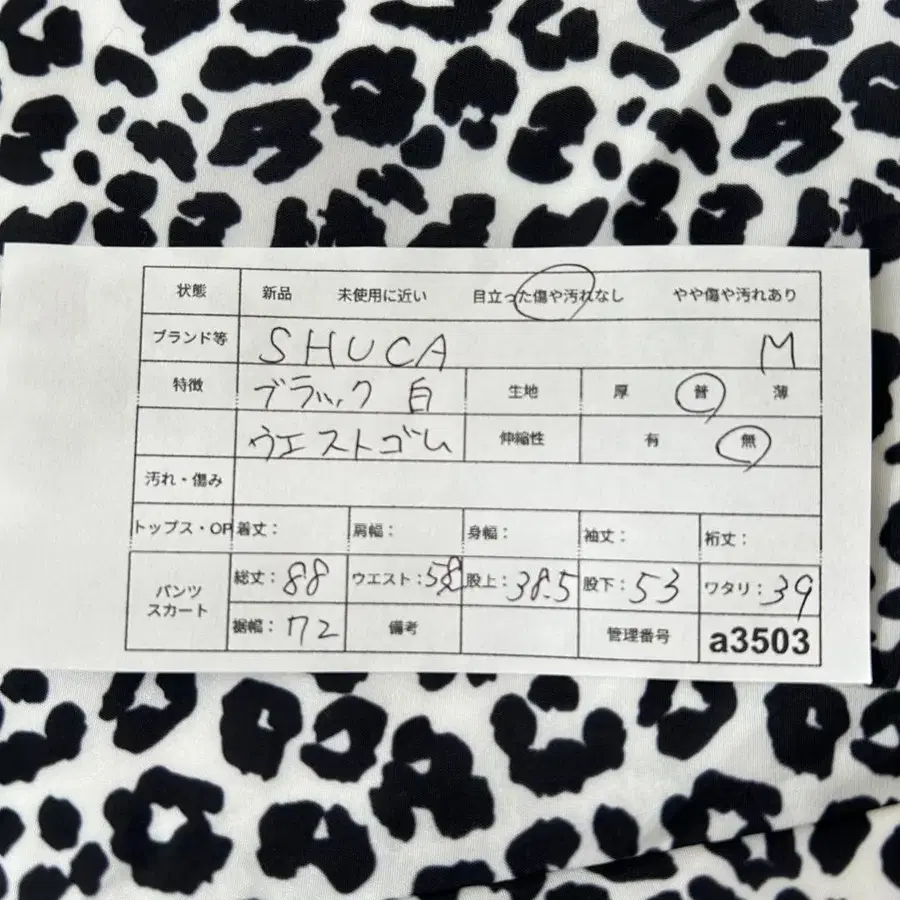 状態 新品 未使用に近い 目立った傷や汚れなし やや傷や汚れあり
ブランド等 SHUCA M
特徴 ブラック 白 生地 厚 普 薄
ウエストゴム 伸縮性 有 無
汚れ・傷み
トップス・OP 着丈: 肩幅: 身幅: 袖丈: 裄丈:
パンツ スカート 総丈:88 ウエスト:58 股上:38.5 股下:53 ワタリ:39
裾幅:72 備考 管理番号 a3503